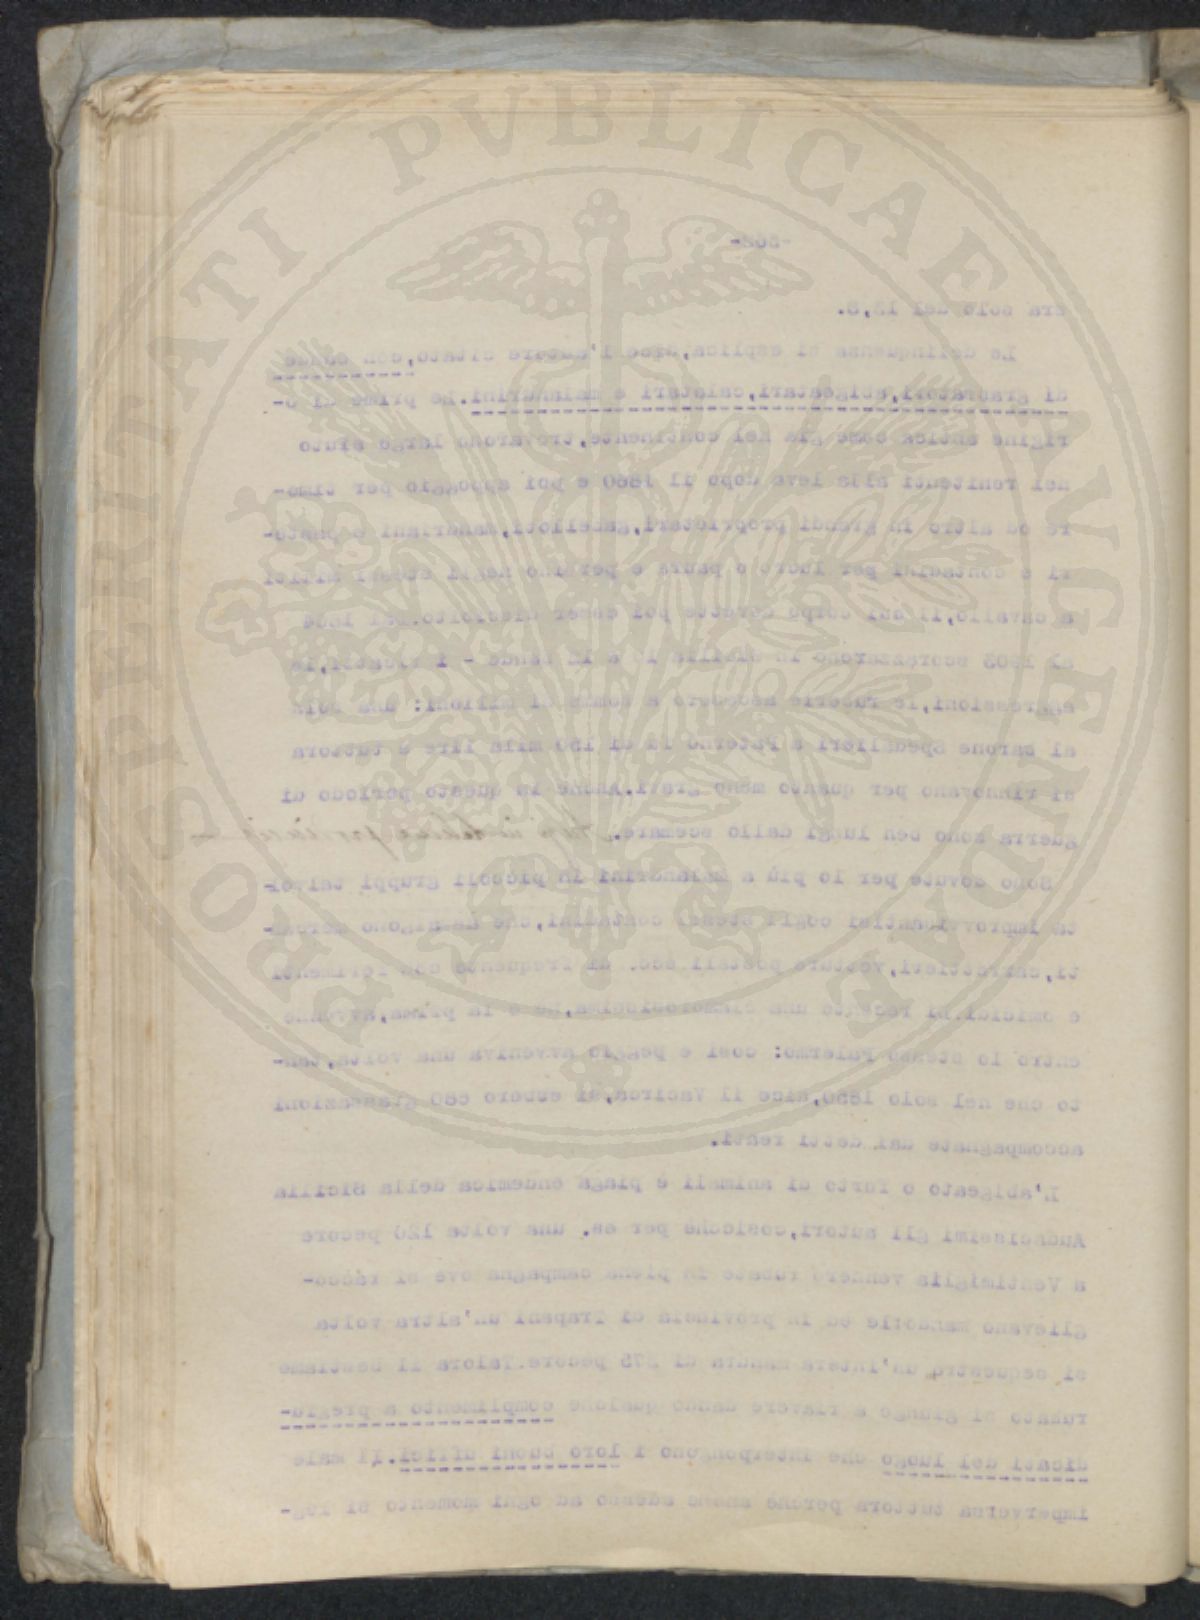 -562-
era solo del 13,8.
La delinquenza si esplica, dice l'autore citato, con bande
di grassatori, abigeatari, calatari e malandrini. Le prime di o-
rigine antica come già nel continente, trovarono largo aiuto
nei renitenti alla leva dopo il 1860 e poi appoggio per timo-
re od altro in grandi proprietari, gabelloti, mandriani e pasto-
ri e contadini per lucro o paura e persino negli stessi militi
a cavallo, il cui corpo dovette poi esser disciolto. Dal
al 1903 scorrazzarono in Sicilia 15 a 18 bande - i ricatti, le
aggressioni, le rapine ascesero a somme di milioni: una sola
al barone Spedalieri a Paternò fu di 150 mila lire e tuttora
si rinnovano per quanto meno gravi. Anche in questo periodo di
guerra sono ben lungi dallo scemare.
Sono dovute per lo più a malandrini in piccoli gruppi talvol-
ta improvvisantisi cogli stessi contadini, che mercan-
ti, carrettieri, vetture postali ecc. di frequente con ferimenti
e omicidi. Di recente una clamorosissima, né è la prima, avvenne
entro lo stesso Palermo: così e peggio avveniva una volta, tan-
to che nel solo 1850, dice il Vacirca, si ebbero 680 grassazioni
accompagnate dai detti reati.
L'abigeato o furto di animali è piaga endemica della Sicilia
Audacissimi gli autori, cosicchè per es. una volta 120 pecore
a Ventimiglia vennero rubate in piena campagna ove si racco-
glievano mandorle ed in provincia di Trapani un'altra volta
si sequestrò un'intera mandra di 375 pecore. Talora il bestiame
rubato si giunge a riavere dando qualche complimento a pregiu-
dicati del luogo che interpongono i loro buoni uffici. Il male
imperversa tuttora perchè anche adesso ad ogni momento si leg-